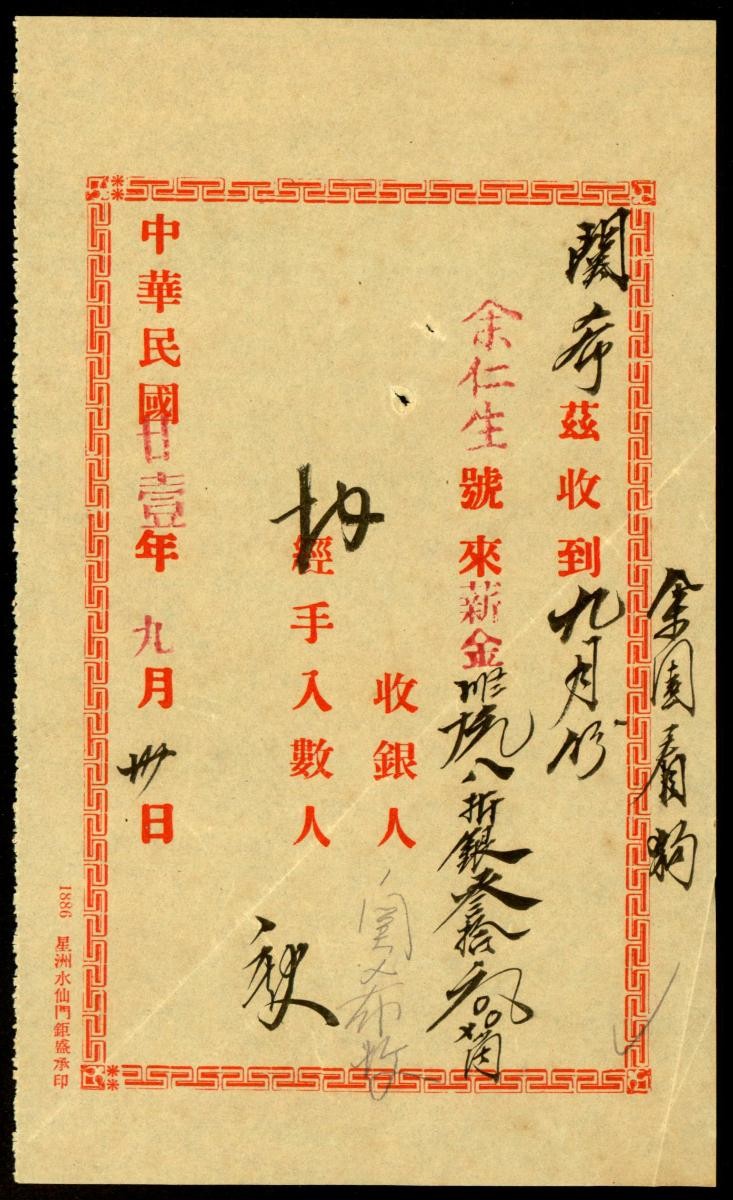 余園看狗
關希茲收到九月份
余仁生號來薪金
八折銀叁拾
收銀人 關希
經手入數人
中華民國廿壹年九月卅日
1886 星洲水仙門鉅盛承印